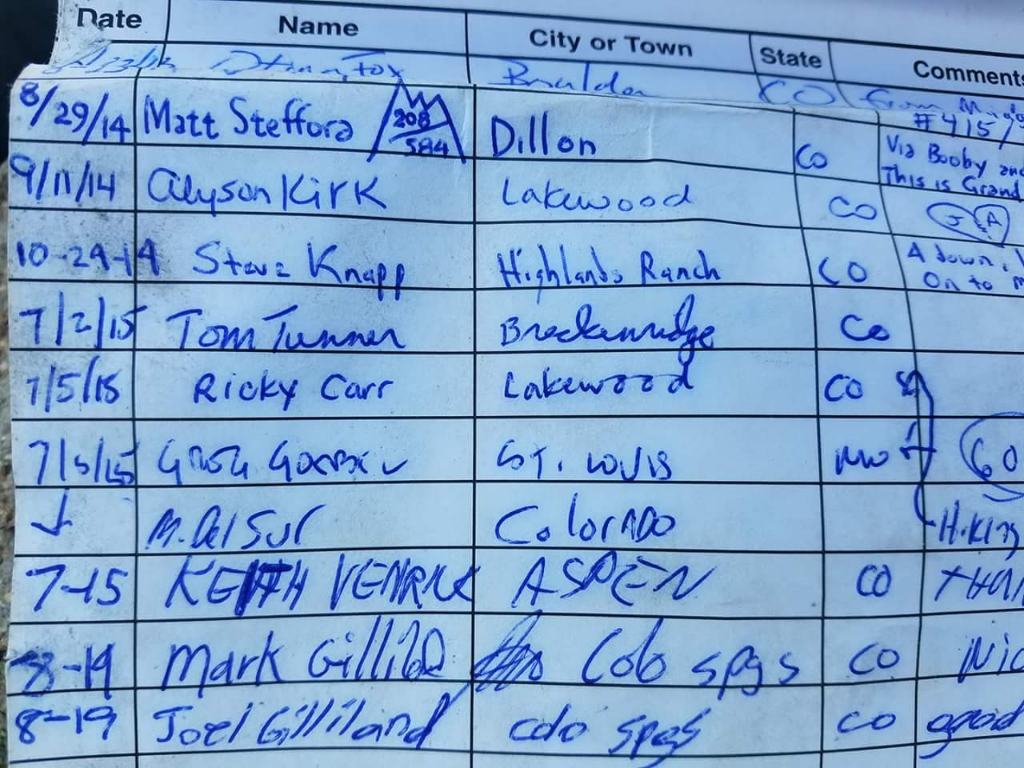 Date Name City or Town State Comments
CO from
8/29/14 Matt Steffora 208 584 Dillon CO #415
Via Booby and
This is Grand
9/11/14 Alyson Kirk Lakewood CO J A
10-29-14 Steve Knapp Highlands Ranch CO A down,
On to
7/2/15 Tom Turner Breckenridge CO
7/5/15 Ricky Carr Lakewood CO
7/5/15 ST. LOUIS MO GO
M. Del Sur Colorado Hiking
7-15 KEITH ASPEN CO
8-19 Mark Colo spgs CO
8-19 Joel Gilliland colo spgs CO good